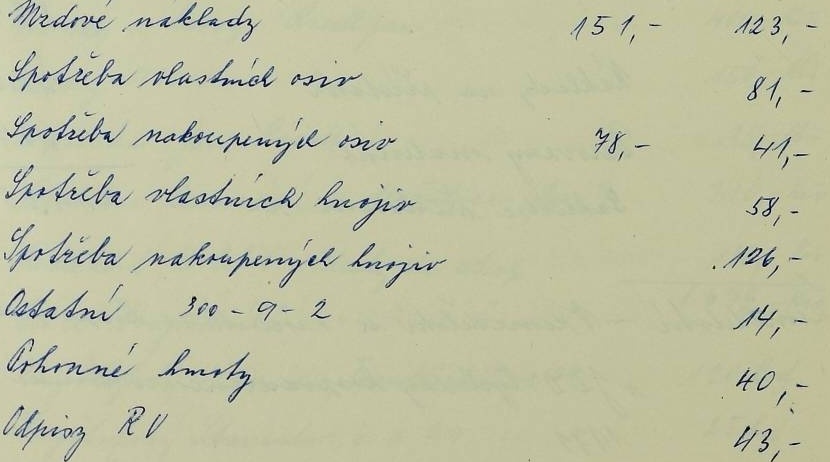 Mzdové náklady 151,- 123,-
Spotřeba vlastních osiv 81,-
Spotřeba nakoupených osiv 78,- 41,-
Spotřeba vlastních hnojiv 58,-
Spotřeba nakoupených hnojiv 126,-
Ostatní 300-9-2 14,-
Pohonné hmoty 40,-
Odpisy RV 43,-